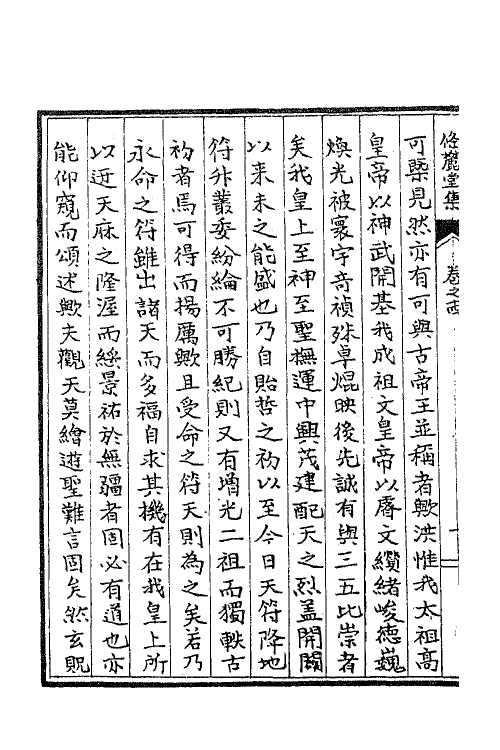 俻麓堂集
卷之四
可槩見然亦有可與古帝王並稱者歟洪惟我太祖高
皇帝以神武開基我成祖文皇帝以睿文纘緒峻德巍
煥光被寰宇奇禎殊卓焜映後先誠有與三五比崇者
矣我皇上至神至聖撫運中興茂建配天之烈盖開闢
以来未之能盛也乃自貽哲之初以至今日天符降地
符升叢委紛綸不可勝紀則又有増光二祖而獨軼古
初者焉可得而揚厲歟且受命之符天則為之矣若乃
永命之符雖出諸天而多福自求其機有在我皇上所
以迓天庥之隆渥而綏景祐於無疆者固必有道也亦
能仰窺而頌述歟夫觀天莫繪遊聖難言固矣然玄貺